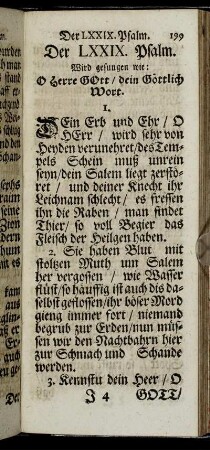 Der LXXIX. Psalm. 199
Der LXXIX. Psalm.
Wird gesungen wie:
O Herre GOtt / dein Göttlich
Wort.
1.
DEin Erb und Ehr / O
HErr / wird sehr von
Heyden verunehret / des Tem-
pels Schein muß unrein
seyn / dein Salem liegt zerstö-
ret / und deiner Knecht ihr
Leichnam schlecht / es fressen
ihn die Raben / man findet
Thier / so voll Begier das
Fleisch der Heilgen haben.
2. Sie haben Blut mit
stoltzen Muth um Salem
her vergossen / wie Wasser
flüst / so häuffig ist auch dis da-
selbst geflossen / ihr böser Mord
gieng immer fort / niemand
begrub zur Erden / nun müs-
sen wir den Nachbahrn hier
zur Schmach und Schande
werden.
3. Kennstu dein Heer / O
J 4 GOTT /